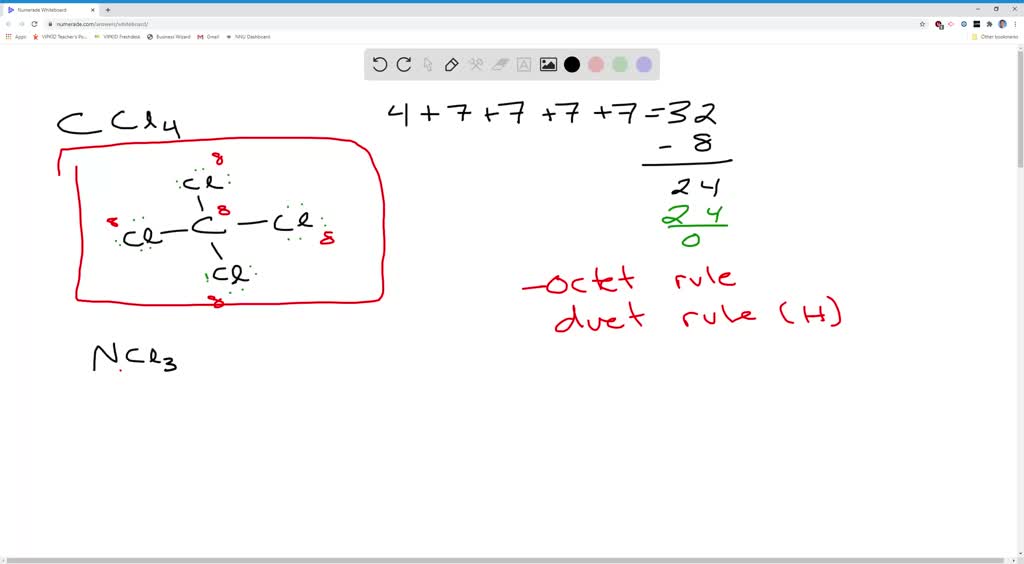 Numerade Whiteboard
numerade.com/answers/whiteboard/
Apps VIPKID Teacher's Po... VIPKID Freshdesk Business Wizard Gmail NNU Dashboard Other bookmarks
CCl4
4 + 7 + 7 + 7 + 7 = 32
- 8
24
24
0
8
Cl
8 8
Cl - C - Cl
8
Cl
8
- Octet rule
duet rule (H)
NCl3